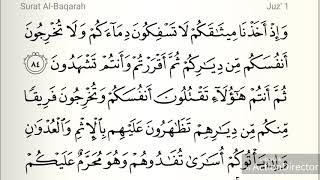 Surat Al-Baqarah Juz' 1
وَإِذْ أَخَذْنَا مِيثَٰقَكُمْ لَا تَسْفِكُونَ دِمَآءَكُمْ وَلَا تُخْرِجُونَ
أَنفُسَكُم مِّن دِيَٰرِكُمْ ثُمَّ أَقْرَرْتُمْ وَأَنتُمْ تَشْهَدُونَ ٨٤
ثُمَّ أَنتُمْ هَٰٓؤُلَآءِ تَقْتُلُونَ أَنفُسَكُمْ وَتُخْرِجُونَ فَرِيقًا
مِّنكُم مِّن دِيَٰرِهِمْ تَظَٰهَرُونَ عَلَيْهِم بِٱلْإِثْمِ وَٱلْعُدْوَٰنِ
وَإِن يَأْتُوكُمْ أُسَٰرَىٰ تُفَٰدُوهُمْ وَهُوَ مُحَرَّمٌ عَلَيْكُمْ
Director